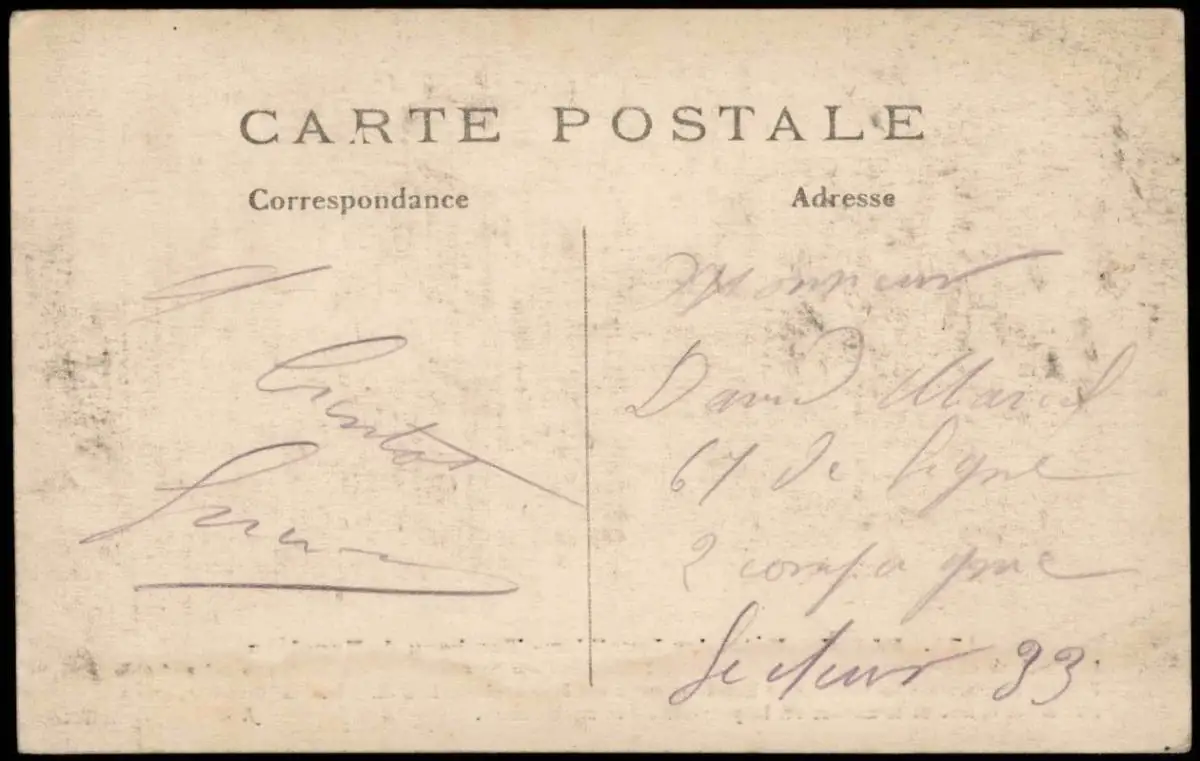 CARTE POSTALE
Correspondance
Adresse
A
Bientot
Monsieur
David Marcel
67 de ligne
2 compagnie
Secteur 93